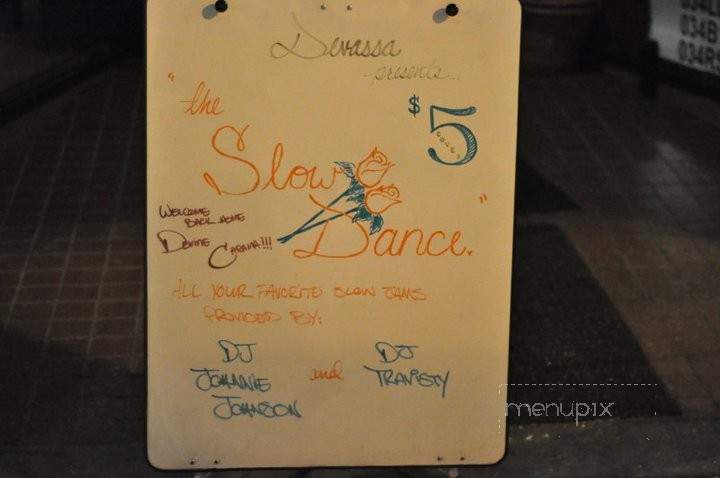 Devassa
presents...
"the
$5
Slow
Dance."
WELCOME
BACK HOME
DEVINE
CARAMA!!!
ALL YOUR FAVORITE SLOW JAMS
PROVIDED BY:
DJ
JOHNNIE
JOHNSON
and
DJ
TRAVISTY
034B
034R
menupix